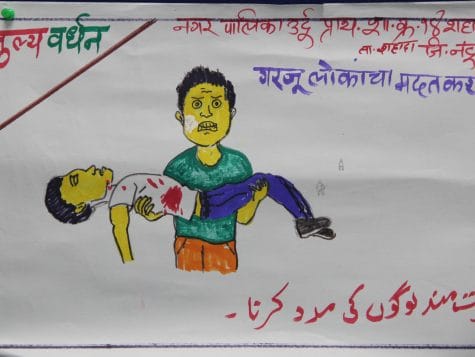 मुल्य वर्धन
नगर पालिका उर्दू प्राथ. शा. क्र. १४ शहा
ता. शहादा जि. नंदु
गरजू लोकांचा मदत कर
ت مند لوگوں کی مدد کرنا۔